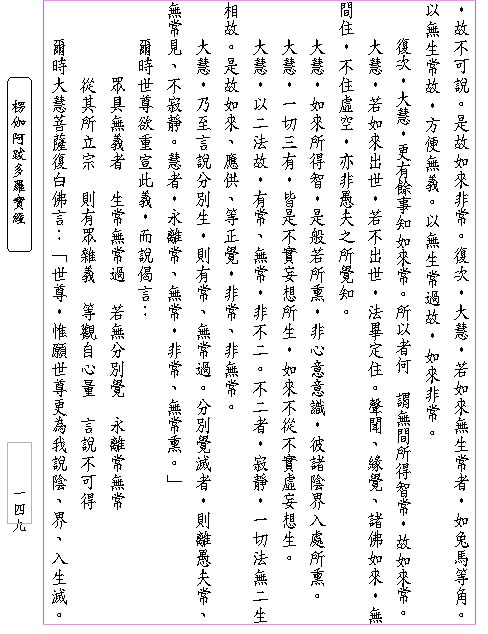 ・故不可說。是故如來非常。復次・大慧・若如來無生常者・如兔馬等角。
以無生常故・方便無義。以無生常過故・如來非常。
復次・大慧・更有餘事知如來常。所以者何　謂無間所得智常・故如來常。
大慧・若如來出世・若不出世・法畢定住。聲聞、緣覺、諸佛如來・無
間住・不住虛空・亦非愚夫之所覺知。
大慧・如來所得智・是般若所熏・非心意意識・彼諸陰界入處所熏。
大慧・一切三有・皆是不實妄想所生・如來不從不實虛妄想生。
大慧・以二法故・有常、無常・非不二。不二者・寂靜・一切法無二生
相故。是故如來、應供、等正覺・非常、非無常。
大慧・乃至言說分別生・則有常、無常過。分別覺滅者・則離愚夫常、
無常見、不寂靜。慧者・永離常、無常・非常、無常熏。」
爾時世尊欲重宣此義・而說偈言：
眾具無義者　生常無常過　若無分別覺　永離常無常
從其所立宗　則有眾雜義　等觀自心量　言說不可得
爾時大慧菩薩復白佛言：「世尊・惟願世尊更為我說陰、界、入生滅。
楞伽阿跋多羅寶經
一四九